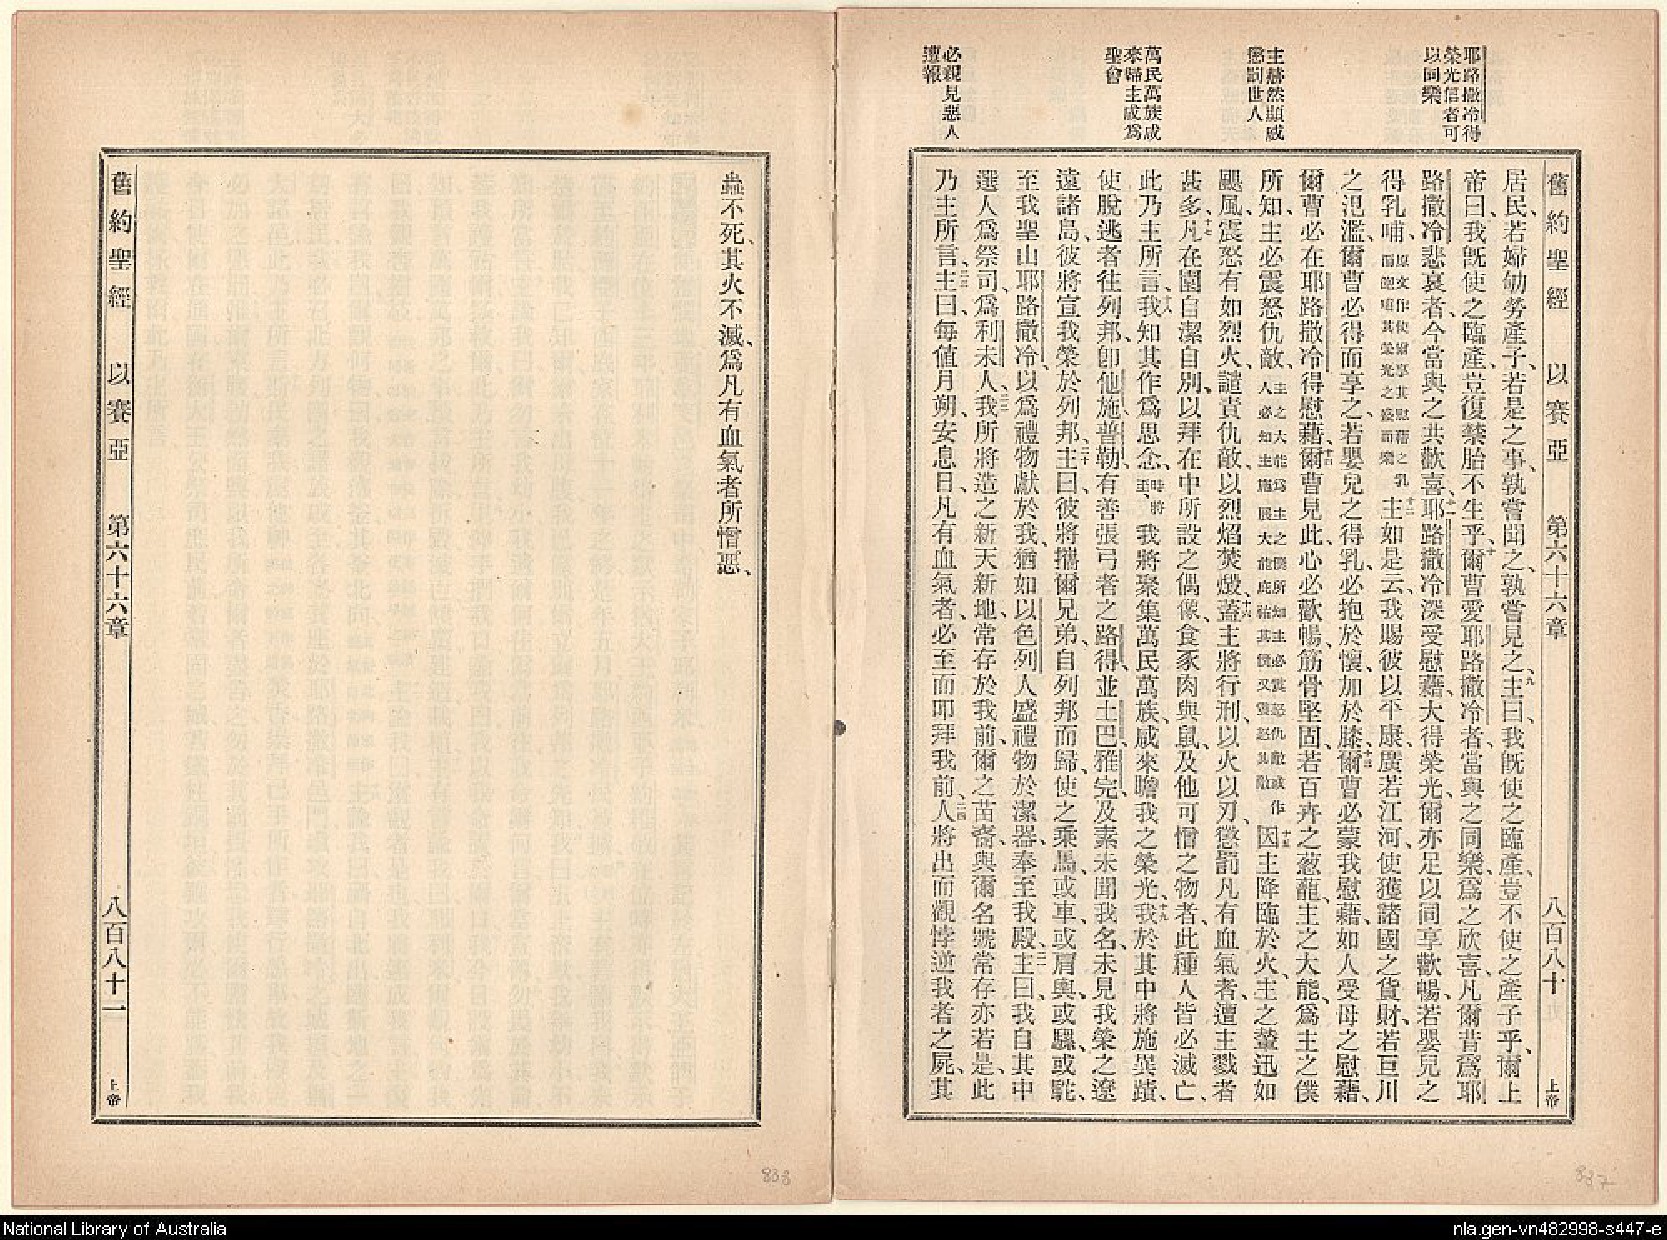 舊約聖經　以賽亞　第六十六章　八百八十　上帝
耶路撒冷得
榮光信者可
以同樂
主赫然顯威
懲罰世人
萬民萬族咸
來歸主成爲
聖會
必親見惡人
遭報
居民、若婦劬勞產子、若是之事、孰嘗聞之、孰嘗見之、九主曰、我旣使之臨產、豈不使之產子乎、爾上
帝曰、我旣使之臨產、豈復禁胎不生乎、十爾曹愛耶路撒冷者、當與之同樂、爲之欣喜、凡爾昔爲耶
路撒冷悲哀者、今當與之共歡喜、十一耶路撒冷深受慰藉、大得榮光、爾亦足以同享歡暢、若嬰兒之
得乳哺、原文作使爾享其慰藉之乳而飽哺其榮光之盛而樂十二主如是云、我賜彼以平康、廣若江河、使獲諸國之貨財、若巨川
之氾濫、爾曹必得而享之、若嬰兒之得乳、必抱於懷、加於膝、十三爾曹必蒙我慰藉、如人受母之慰藉、
爾曹必在耶路撒冷得慰藉、十四爾曹見此、心必歡暢、筋骨堅固、若百卉之葱蘢、主之大能、爲主之僕
所知、主必震怒仇敵、主之大能爲主之僕所知主必震怒仇敵或作人必知主施厥大能庇祐其僕又震怒其敵十五因主降臨於火、主之輦迅如
颶風、震怒有如烈火、譴責仇敵、以烈焰焚燬、十六蓋主將行刑、以火以刃、懲罰凡有血氣者、遭主戮者
甚多、十七凡在園自潔自別、以拜在中所設之偶像、食豕肉與鼠、及他可憎之物者、此種人皆必滅亡、
此乃主所言、十八我知其作爲思念、時將至、我將聚集萬民萬族、咸來瞻我之榮光、十九我於其中將施異蹟、
使脫逃者往列邦、卽他施、普勒、有善張弓者之路得、並土巴、雅完、及素未聞我名、未見我榮之遼
遠諸島、彼將宣我榮於列邦、二十主曰、彼將攜爾兄弟、自列邦而歸、使之乘馬、或車、或肩輿、或騾、或駝、
至我聖山耶路撒冷、以爲禮物獻於我、猶如以色列人盛禮物於潔器、奉至我殿、二一主曰、我自其中
選人爲祭司、爲利未人、二二我所將造之新天新地、常存於我前、爾之苗裔、與爾名號、常存亦若是、此
乃主所言、二三主曰、每值月朔、安息日、凡有血氣者、必至而叩拜我前、二四人將出而觀悖逆我者之屍、其
蟲不死、其火不滅、爲凡有血氣者所憎惡、
舊約聖經　以賽亞　第六十六章　八百八十一　上帝
838
837
National Library of Australia
nla.gen-vn482998-s447-e